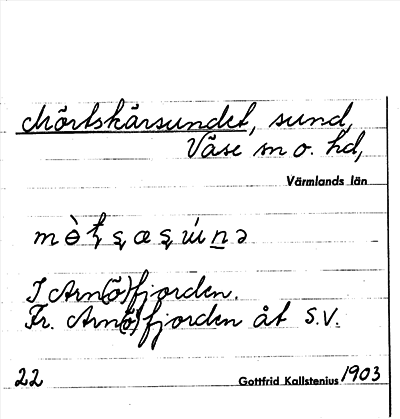 Mörtskärsundet, sund,
Väse sn o. hd,
Värmlands län
I Arn(ö)fjorden.
Fr. Arn(ö)fjorden åt S.V.
22 Gottfrid Kallstenius 1903